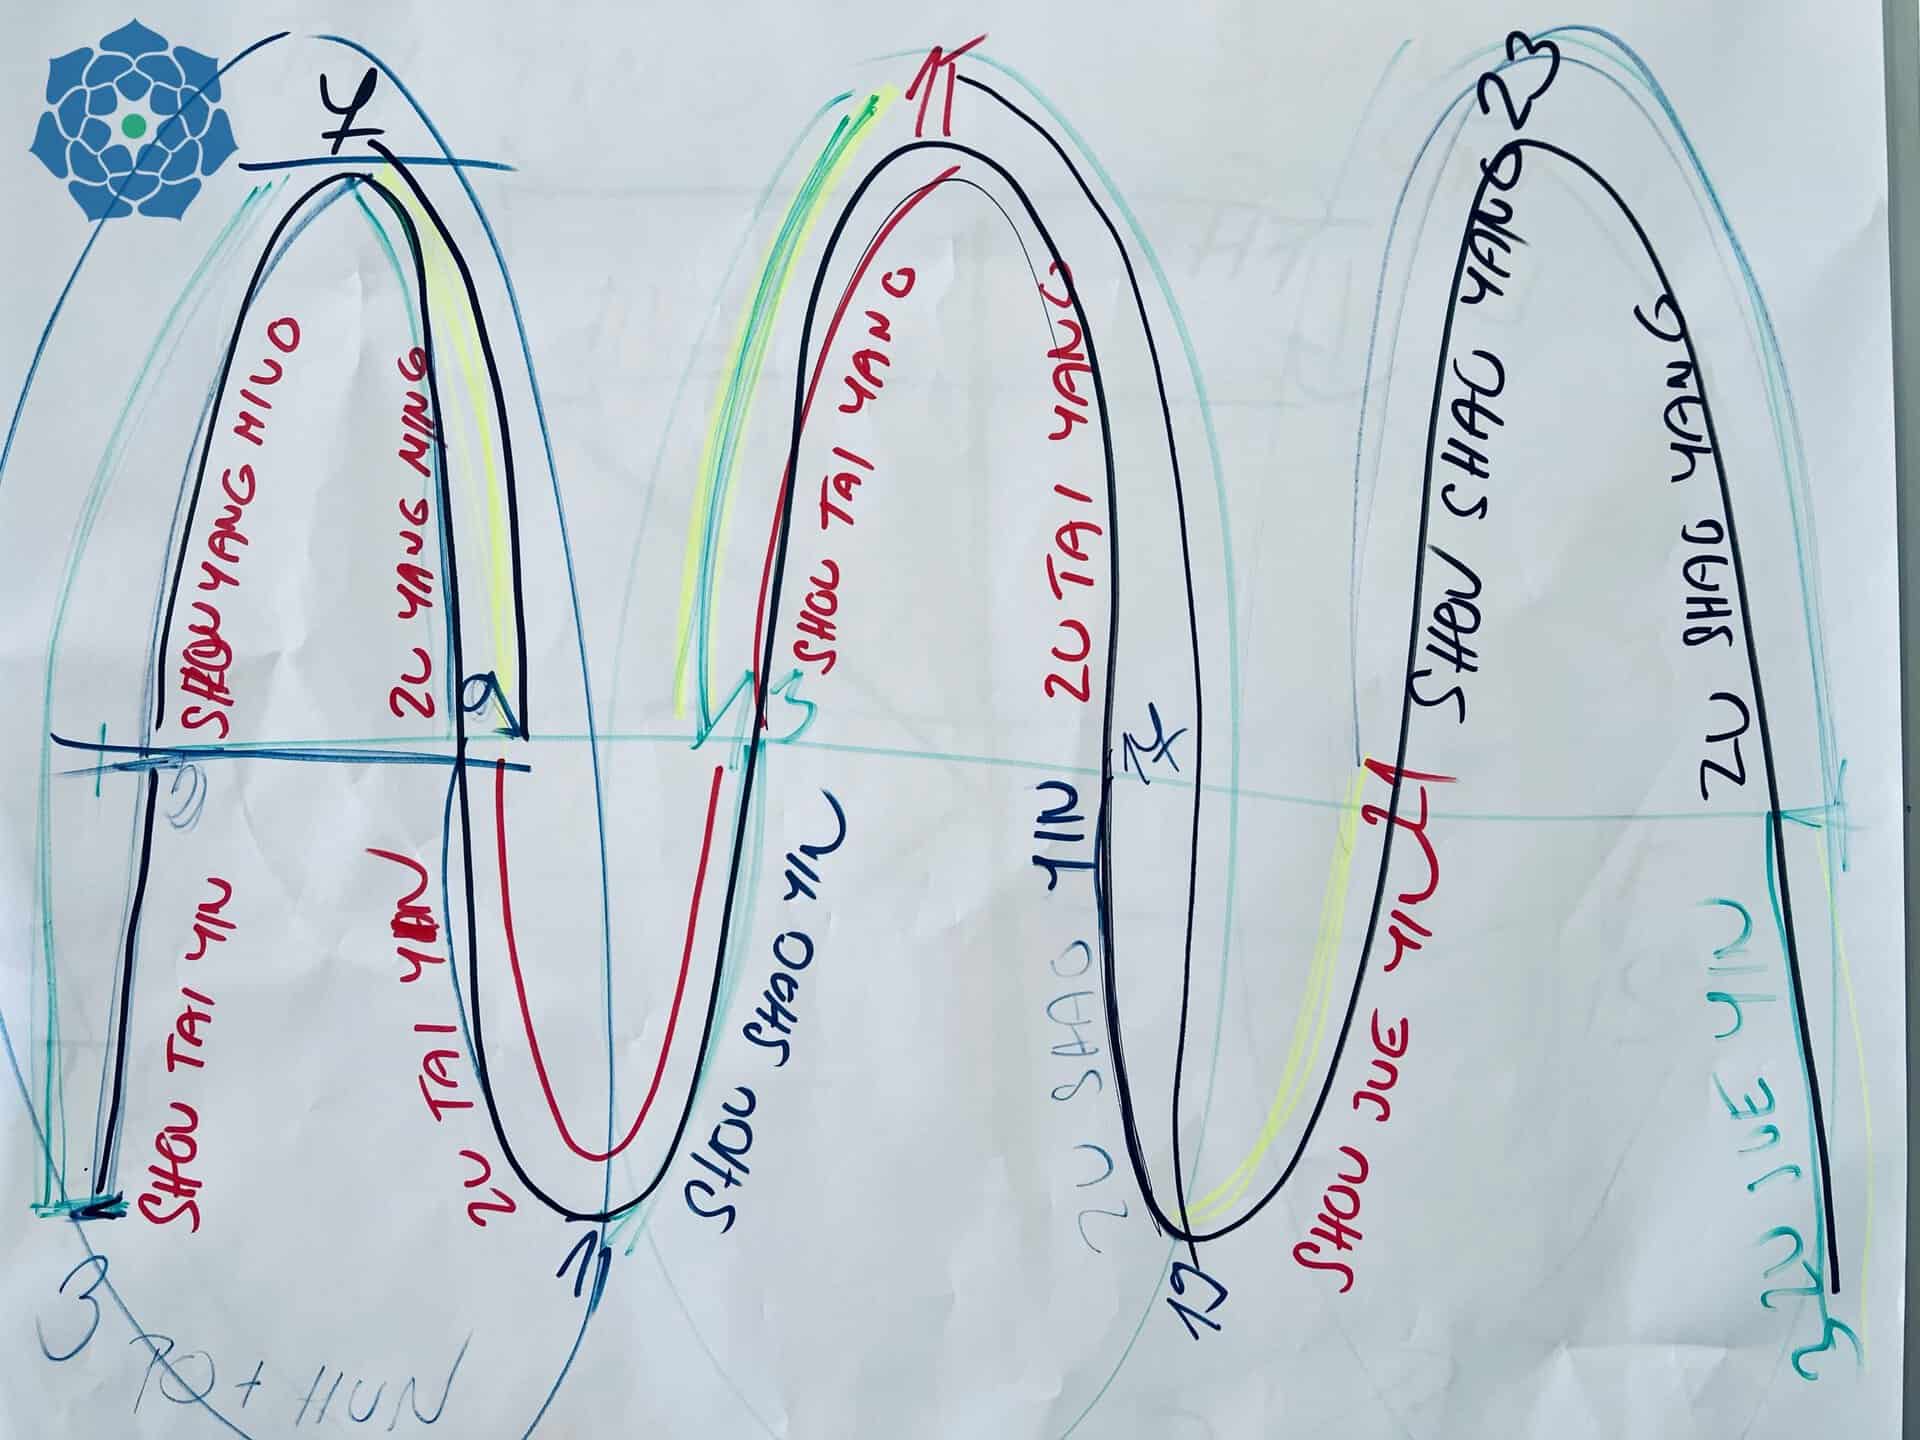 7
SHOU YANG MING
ZU YANG MING
9
SHOU TAI YIN
ZU TAI YIN
3
PO + HUN
11
SHOU SHAO YIN
13
SHOU TAI YANG
ZU TAI YANG
17
ZU SHAO YIN
19
SHOU JUE YIN
21
SHOU SHAO YANG
23
ZU SHAO YANG
ZU JUE YIN
3